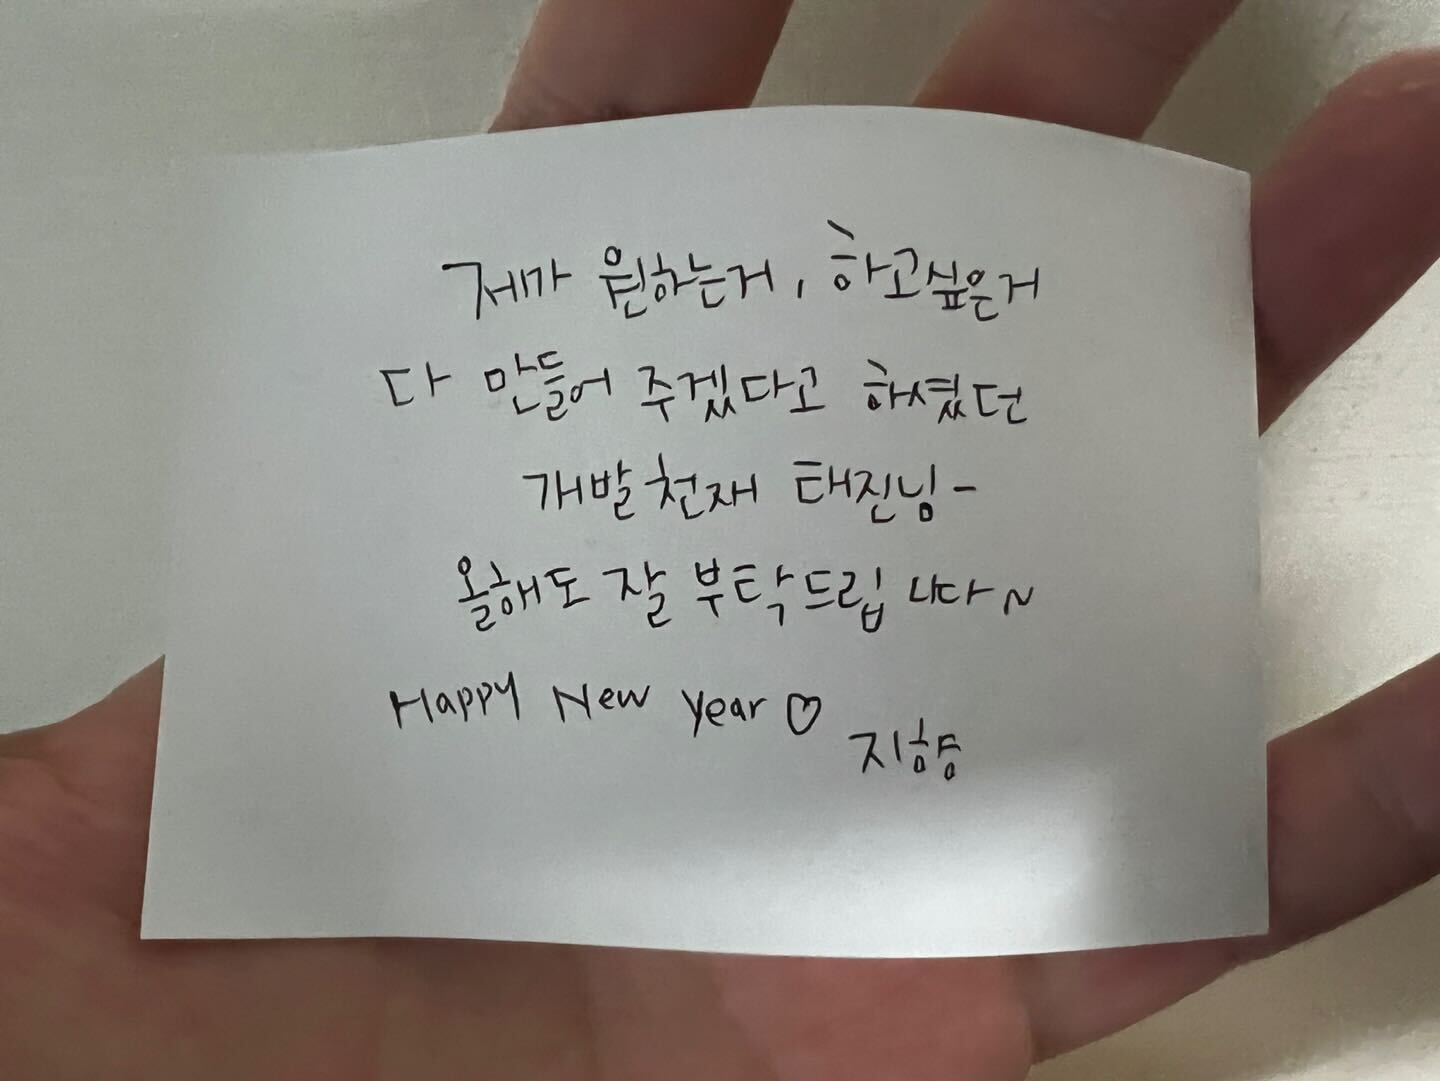 저가 원하는거, 하고싶은거
다 만들어 주겠다고 하셨던
개발천재 태진님-
올해도 잘 부탁드립니다~
Happy New Year ♡
지향